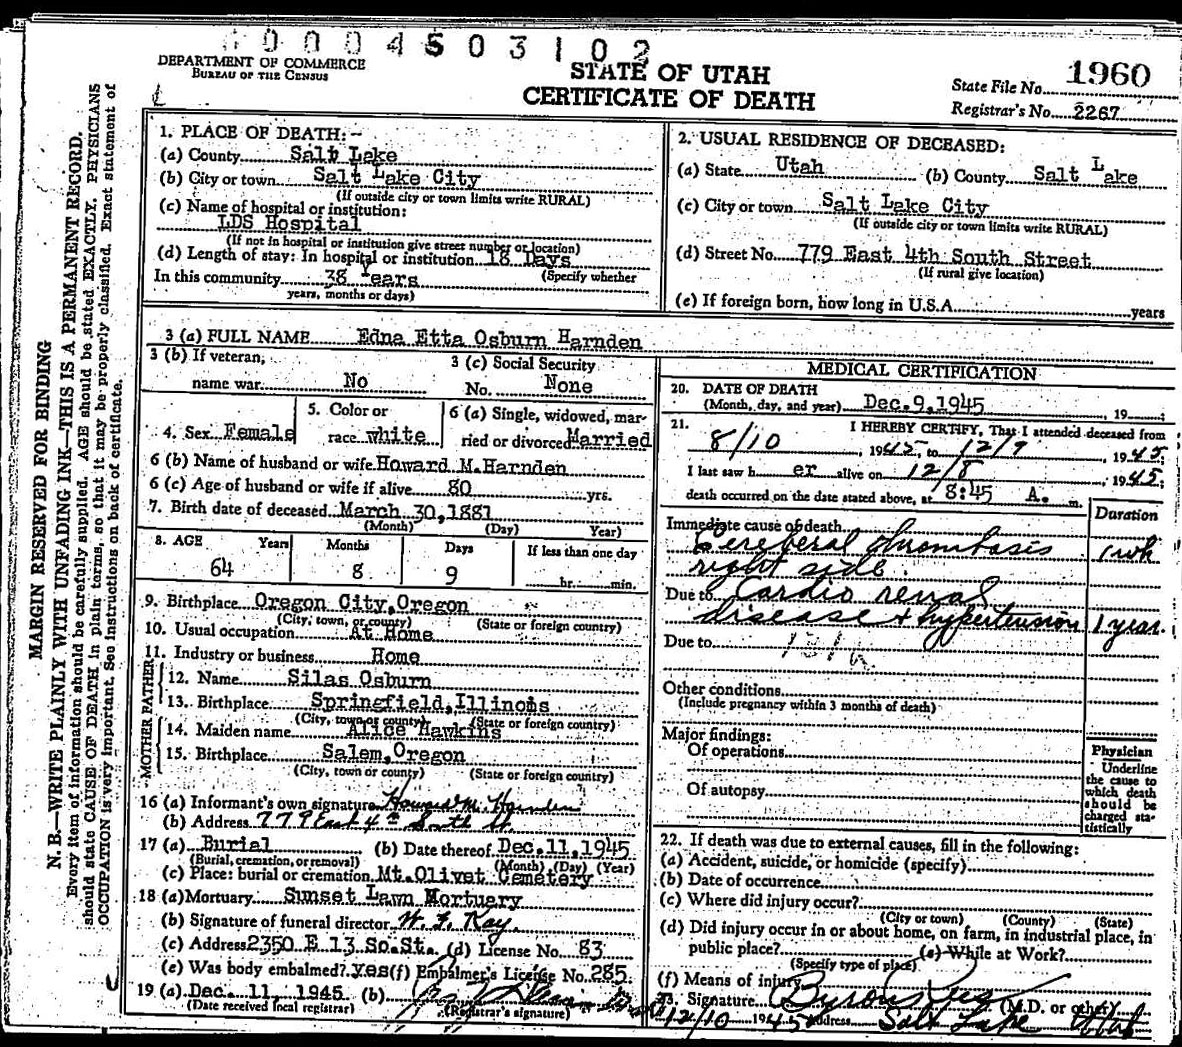 0 0 0 4 5 0 3 1 0 2
DEPARTMENT OF COMMERCE
BUREAU OF THE CENSUS
STATE OF UTAH
CERTIFICATE OF DEATH
State File No. 1960
Registrar's No. 2267
MARGIN RESERVED FOR BINDING
N. B.—WRITE PLAINLY WITH UNFADING INK—THIS IS A PERMANENT RECORD.
Every item of information should be carefully supplied. AGE should be stated EXACTLY. PHYSICIANS
should state CAUSE OF DEATH in plain terms, so that it may be properly classified. Exact statement of
OCCUPATION is very important. See instructions on back of certificate.
1. PLACE OF DEATH:-
(a) County Salt Lake
(b) City or town Salt Lake City
(If outside city or town limits write RURAL)
(c) Name of hospital or institution:
LDS Hospital
(If not in hospital or institution give street number or location)
(d) Length of stay: In hospital or institution 18 Days
(Specify whether
In this community 38 Years
years, months or days)
2. USUAL RESIDENCE OF DECEASED:
(a) State Utah (b) County Salt Lake
(c) City or town Salt Lake City
(If outside city or town limits write RURAL)
(d) Street No. 779 East 4th South Street
(If rural give location)
(e) If foreign born, how long in U.S.A. years
3 (a) FULL NAME Edna Etta Osburn Harnden
3 (b) If veteran, name war No
3 (c) Social Security No. None
4. Sex Female
5. Color or race white
6 (a) Single, widowed, married or divorced Married
6 (b) Name of husband or wife Howard M. Harnden
6 (c) Age of husband or wife if alive 80 yrs.
7. Birth date of deceased March 30, 1881
(Month) (Day) Year)
8. AGE Years Months Days If less than one day
64 8 9 hr. min.
9. Birthplace Oregon City, Oregon
(City, town, or county) (State or foreign country)
10. Usual occupation At Home
11. Industry or business Home
FATHER
12. Name Silas Osburn
13. Birthplace Springfield, Illinois
(City, town or county) (State or foreign country)
MOTHER
14. Maiden name Alice Hawkins
15. Birthplace Salem, Oregon
(City, town or county) (State or foreign country)
16 (a) Informant's own signature Howard M. Harnden
(b) Address 779 East 4th South St.
17 (a) Burial (b) Date thereof Dec. 11, 1945
(Burial, cremation, or removal) (Month) (Day) (Year)
(c) Place: burial or cremation Mt. Olivet Cemetery
18 (a) Mortuary Sunset Lawn Mortuary
(b) Signature of funeral director W. E. Kay
(c) Address 2350 E. 13 So. St. (d) License No. 83
(e) Was body embalmed? yes (f) Embalmer's License No. 285
19 (a) Dec. 11, 1945 (b)
(Date received local registrar) (Registrar's signature)
MEDICAL CERTIFICATION
20. DATE OF DEATH
(Month, day, and year) Dec. 9, 1945, 19
21. I HEREBY CERTIFY, That I attended deceased from
8/10, 1945, to 12/9, 1945;
I last saw h er alive on 12/8, 1945;
death occurred on the date stated above, at 8:45 A. m.
Duration
Immediate cause of death
Cerebral thrombosis 1 wk
right side.
Due to Cardio renal
disease + hypertension 1 year.
Due to 131a
Other conditions
(Include pregnancy within 3 months of death)
Major findings:
Of operations
Of autopsy
Physician
Underline
the cause to
which death
should be
charged sta-
tistically
22. If death was due to external causes, fill in the following:
(a) Accident, suicide, or homicide (specify)
(b) Date of occurrence
(c) Where did injury occur?
(City or town) (County) (State)
(d) Did injury occur in or about home, on farm, in industrial place, in
public place? (e) While at Work?
(Specify type of place)
(f) Means of injury
23. Signature (M.D. or other)
12/10 1945 Address Salt Lake Utah